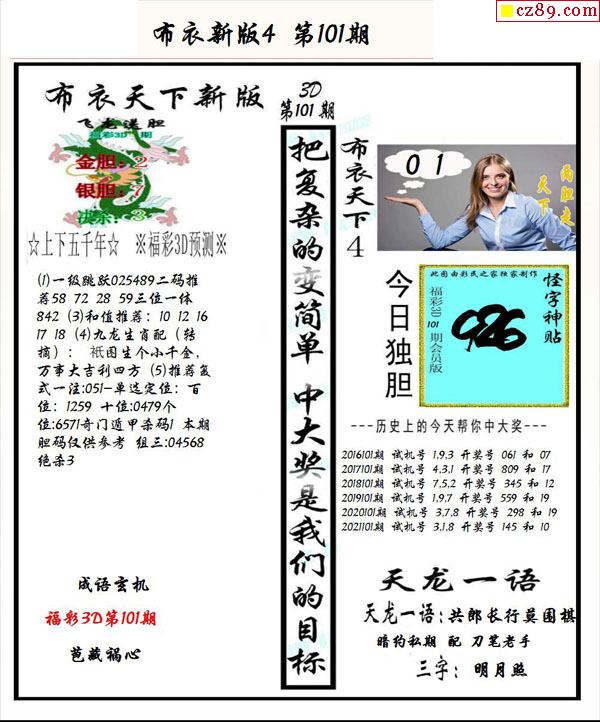 cz89.com
布衣新版4 第101期
布衣天下新版
飞龙送胆
福彩3D 期
金胆: 2
银胆: 7
决杀: 3
☆上下五千年☆ ※福彩3D预测※
(1)一级跳跃025489二码推
荐58 72 28 59三位一体
842 (3)和值推荐: 10 12 16
17 18 (4)九龙生肖配(转
摘): 祇图生个小千金,
万事大吉利四方 (5)推荐复
式一注:051-单选定位: 百
位: 1259 十位:0479个
位:6571奇门遁甲杀码1 本期
胆码仅供参考 组三:04568
绝杀3
成语玄机
福彩3D第101期
苞藏祸心
3D
第101期
把复杂的变简单 中大奖是我们的目标
布衣天下4
01
两胆走
天下
今日独胆
此图由彩民之家独家制作
福彩3D 101 期会员版
926
怪字神贴
---历史上的今天帮你中大奖---
2016101期 试机号 1,9,3 开奖号 061 和 07
2017101期 试机号 4,3,1 开奖号 809 和 17
2018101期 试机号 7,5,2 开奖号 345 和 12
2019101期 试机号 1,9,7 开奖号 559 和 19
2020101期 试机号 3,7,8 开奖号 298 和 19
2021101期 试机号 3,1,8 开奖号 145 和 10
天龙一语
天龙一语:共郎长行莫围棋
暗约私期 配 刀笔老手
三字: 明月照